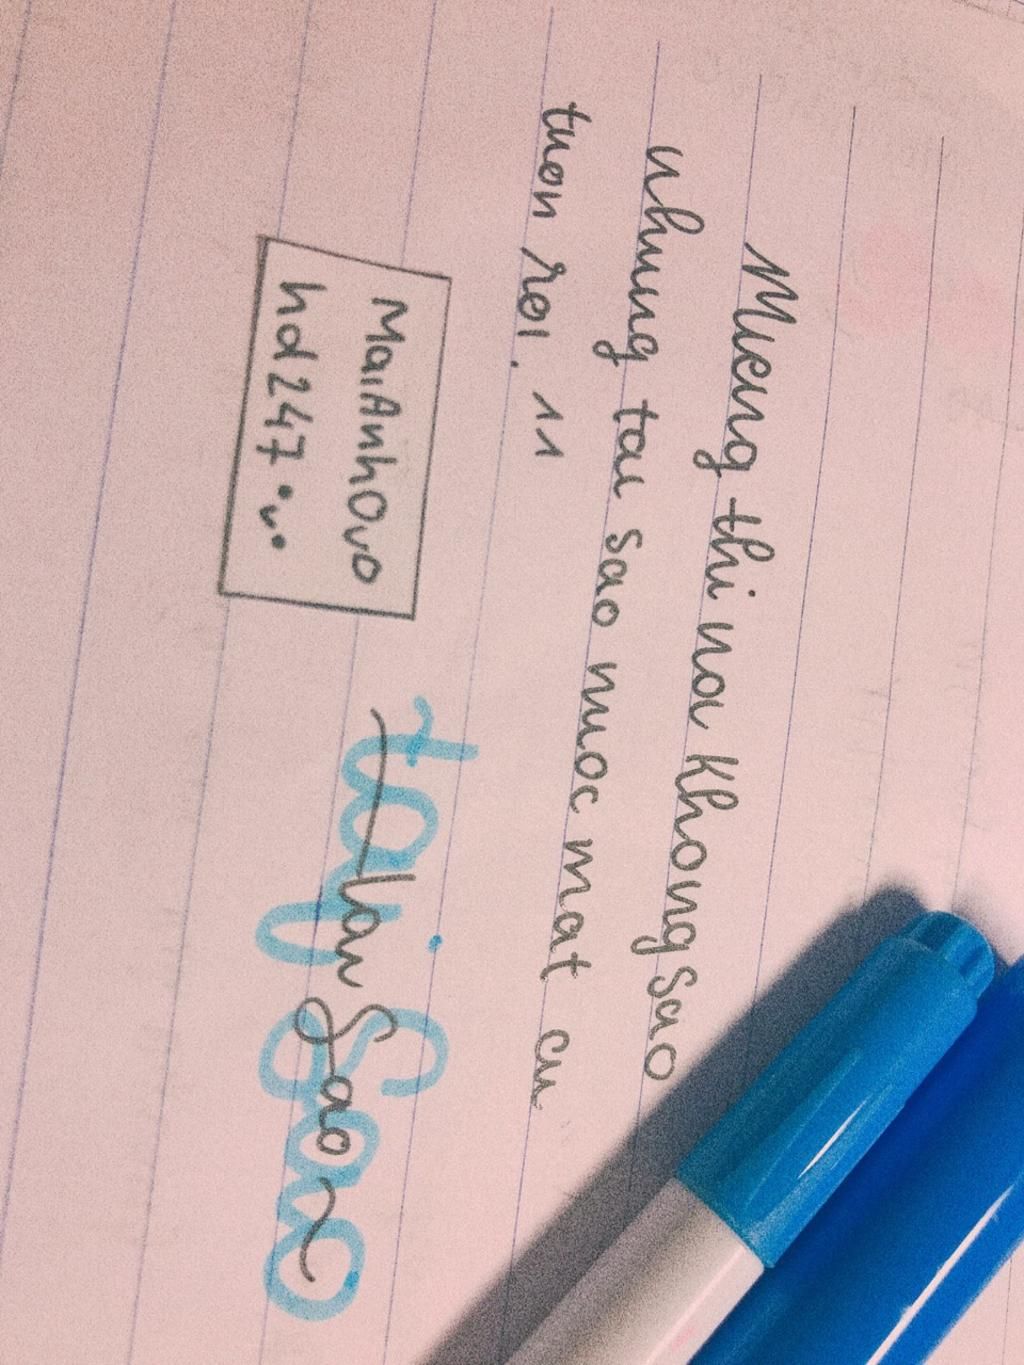 Mieng thi noi Khong Sao
nhung tai sao nuoc mat cu
tuon roi. 11
MaiAnhOvo
hd247
taj Sao
~ tai Sao ~